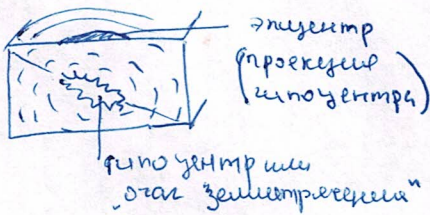 эпицентр
(проекция
гипоцентра)
гипоцентр или
„очаг землетрясения"